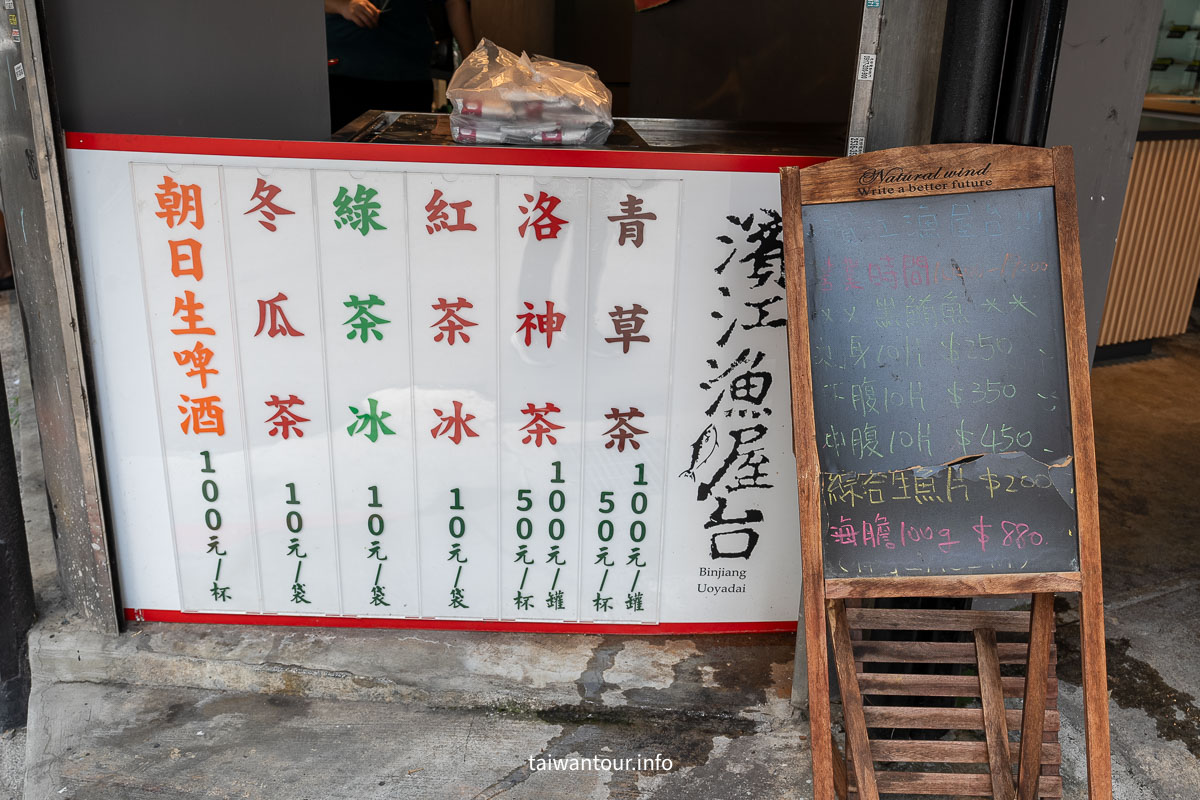 濱江漁屋台
Binjiang
Uoyadai
青草茶
100元/罐
50元/杯
洛神茶
100元/罐
50元/杯
紅茶冰
10元/袋
綠茶冰
10元/袋
冬瓜茶
10元/袋
朝日生啤酒
100元/杯
Natural wind
Write a better future
時間
10片 $250
腹10片 $350
中腹10片 $450
綜合生魚片 $200
海膽100g $880
taiwantour.info